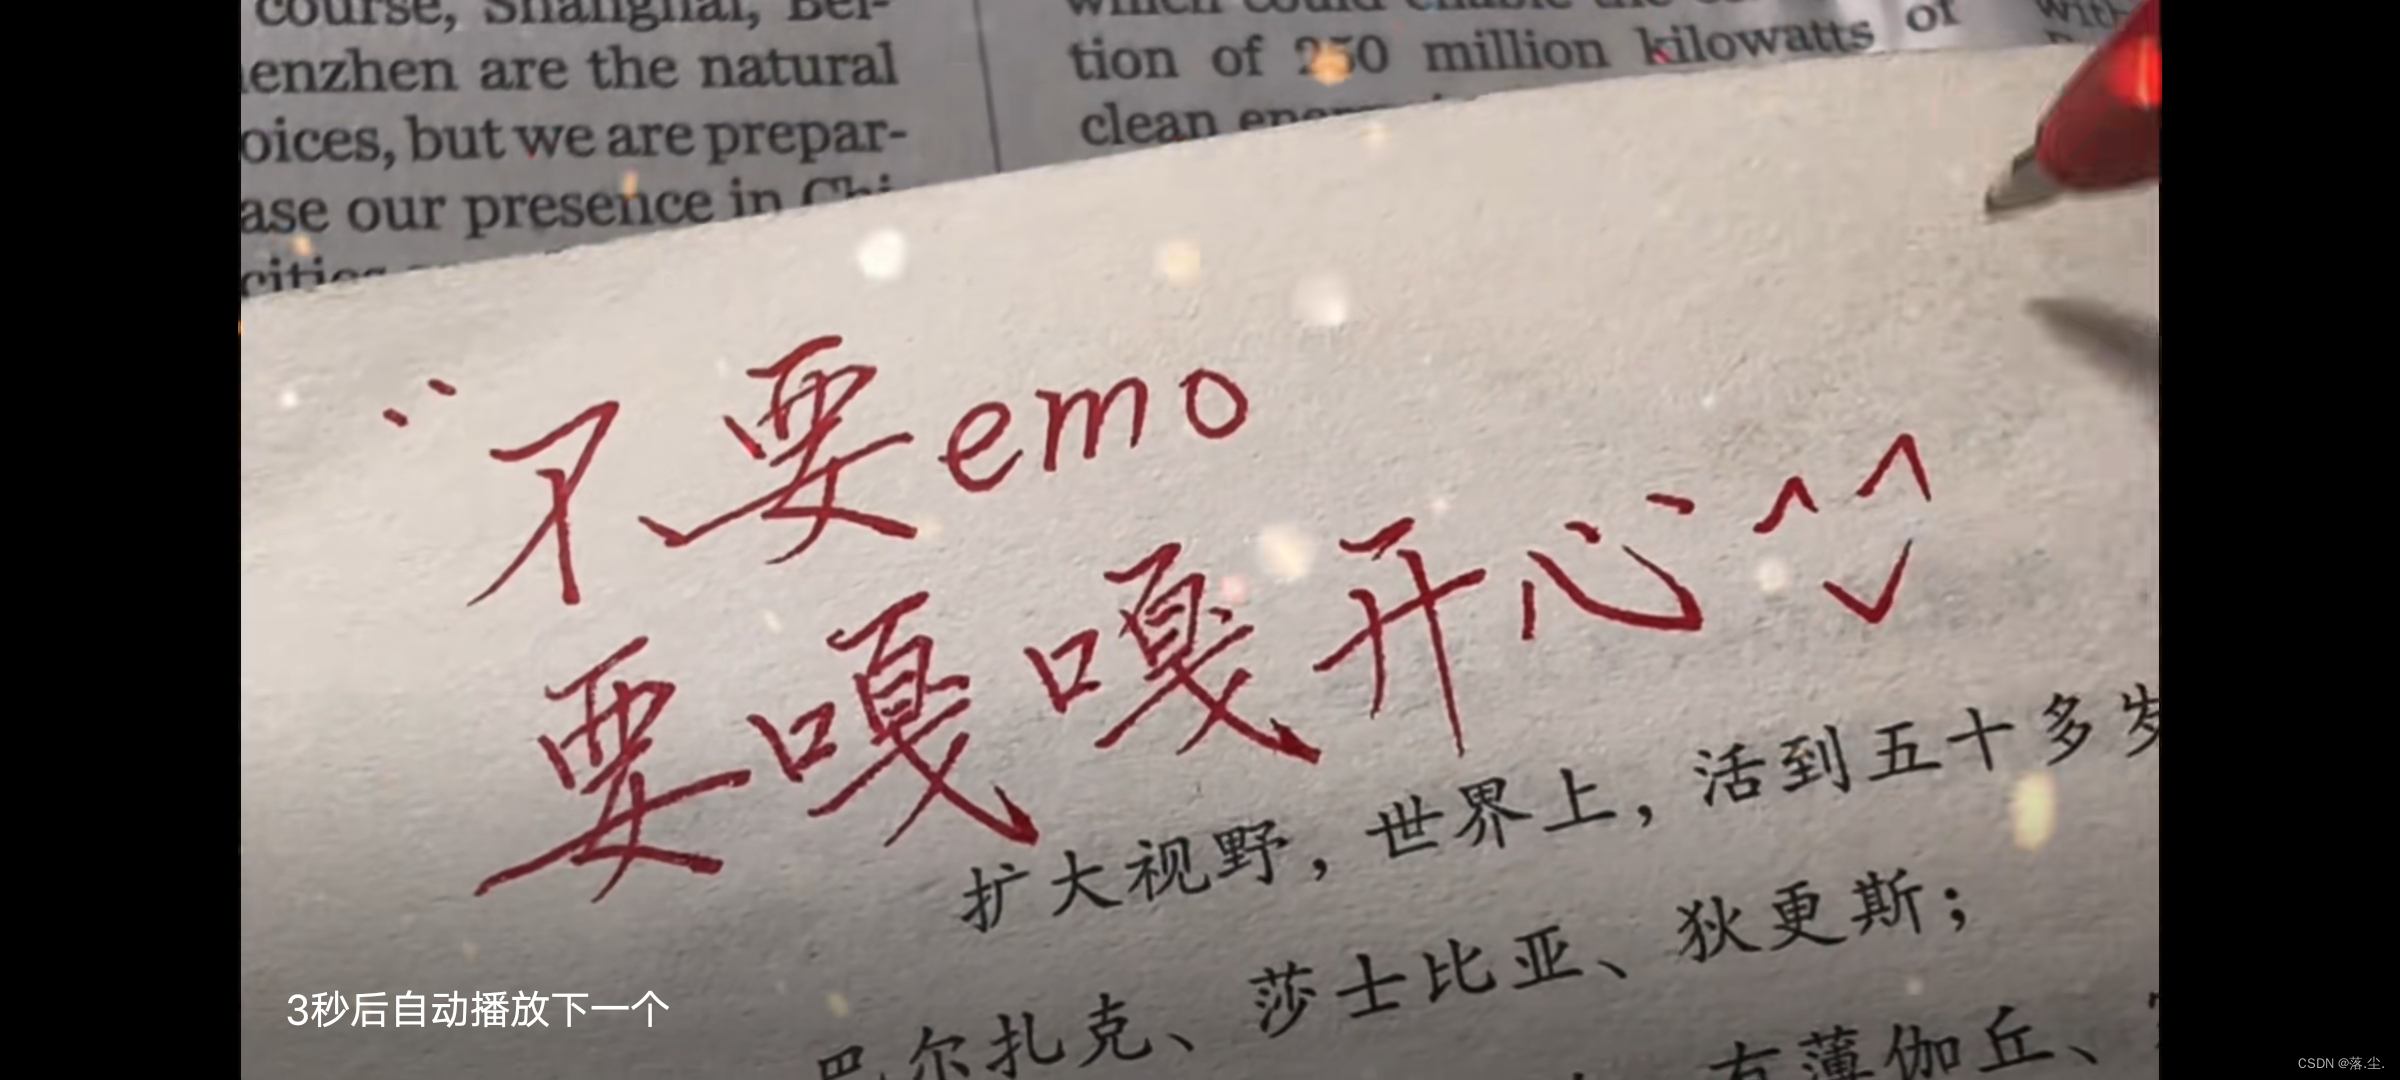 course, Shanghai, Bei-
enzhen are the natural
oices, but we are prepar-
ase our presence in Chi
cities
which could enable the
tion of 250 million kilowatts of
clean
with
"不要emo
要嘎嘎开心"
扩大视野，世界上，活到五十多岁
巴尔扎克、莎士比亚、狄更斯；
有薄伽丘、
3秒后自动播放下一个
CSDN @落.尘.